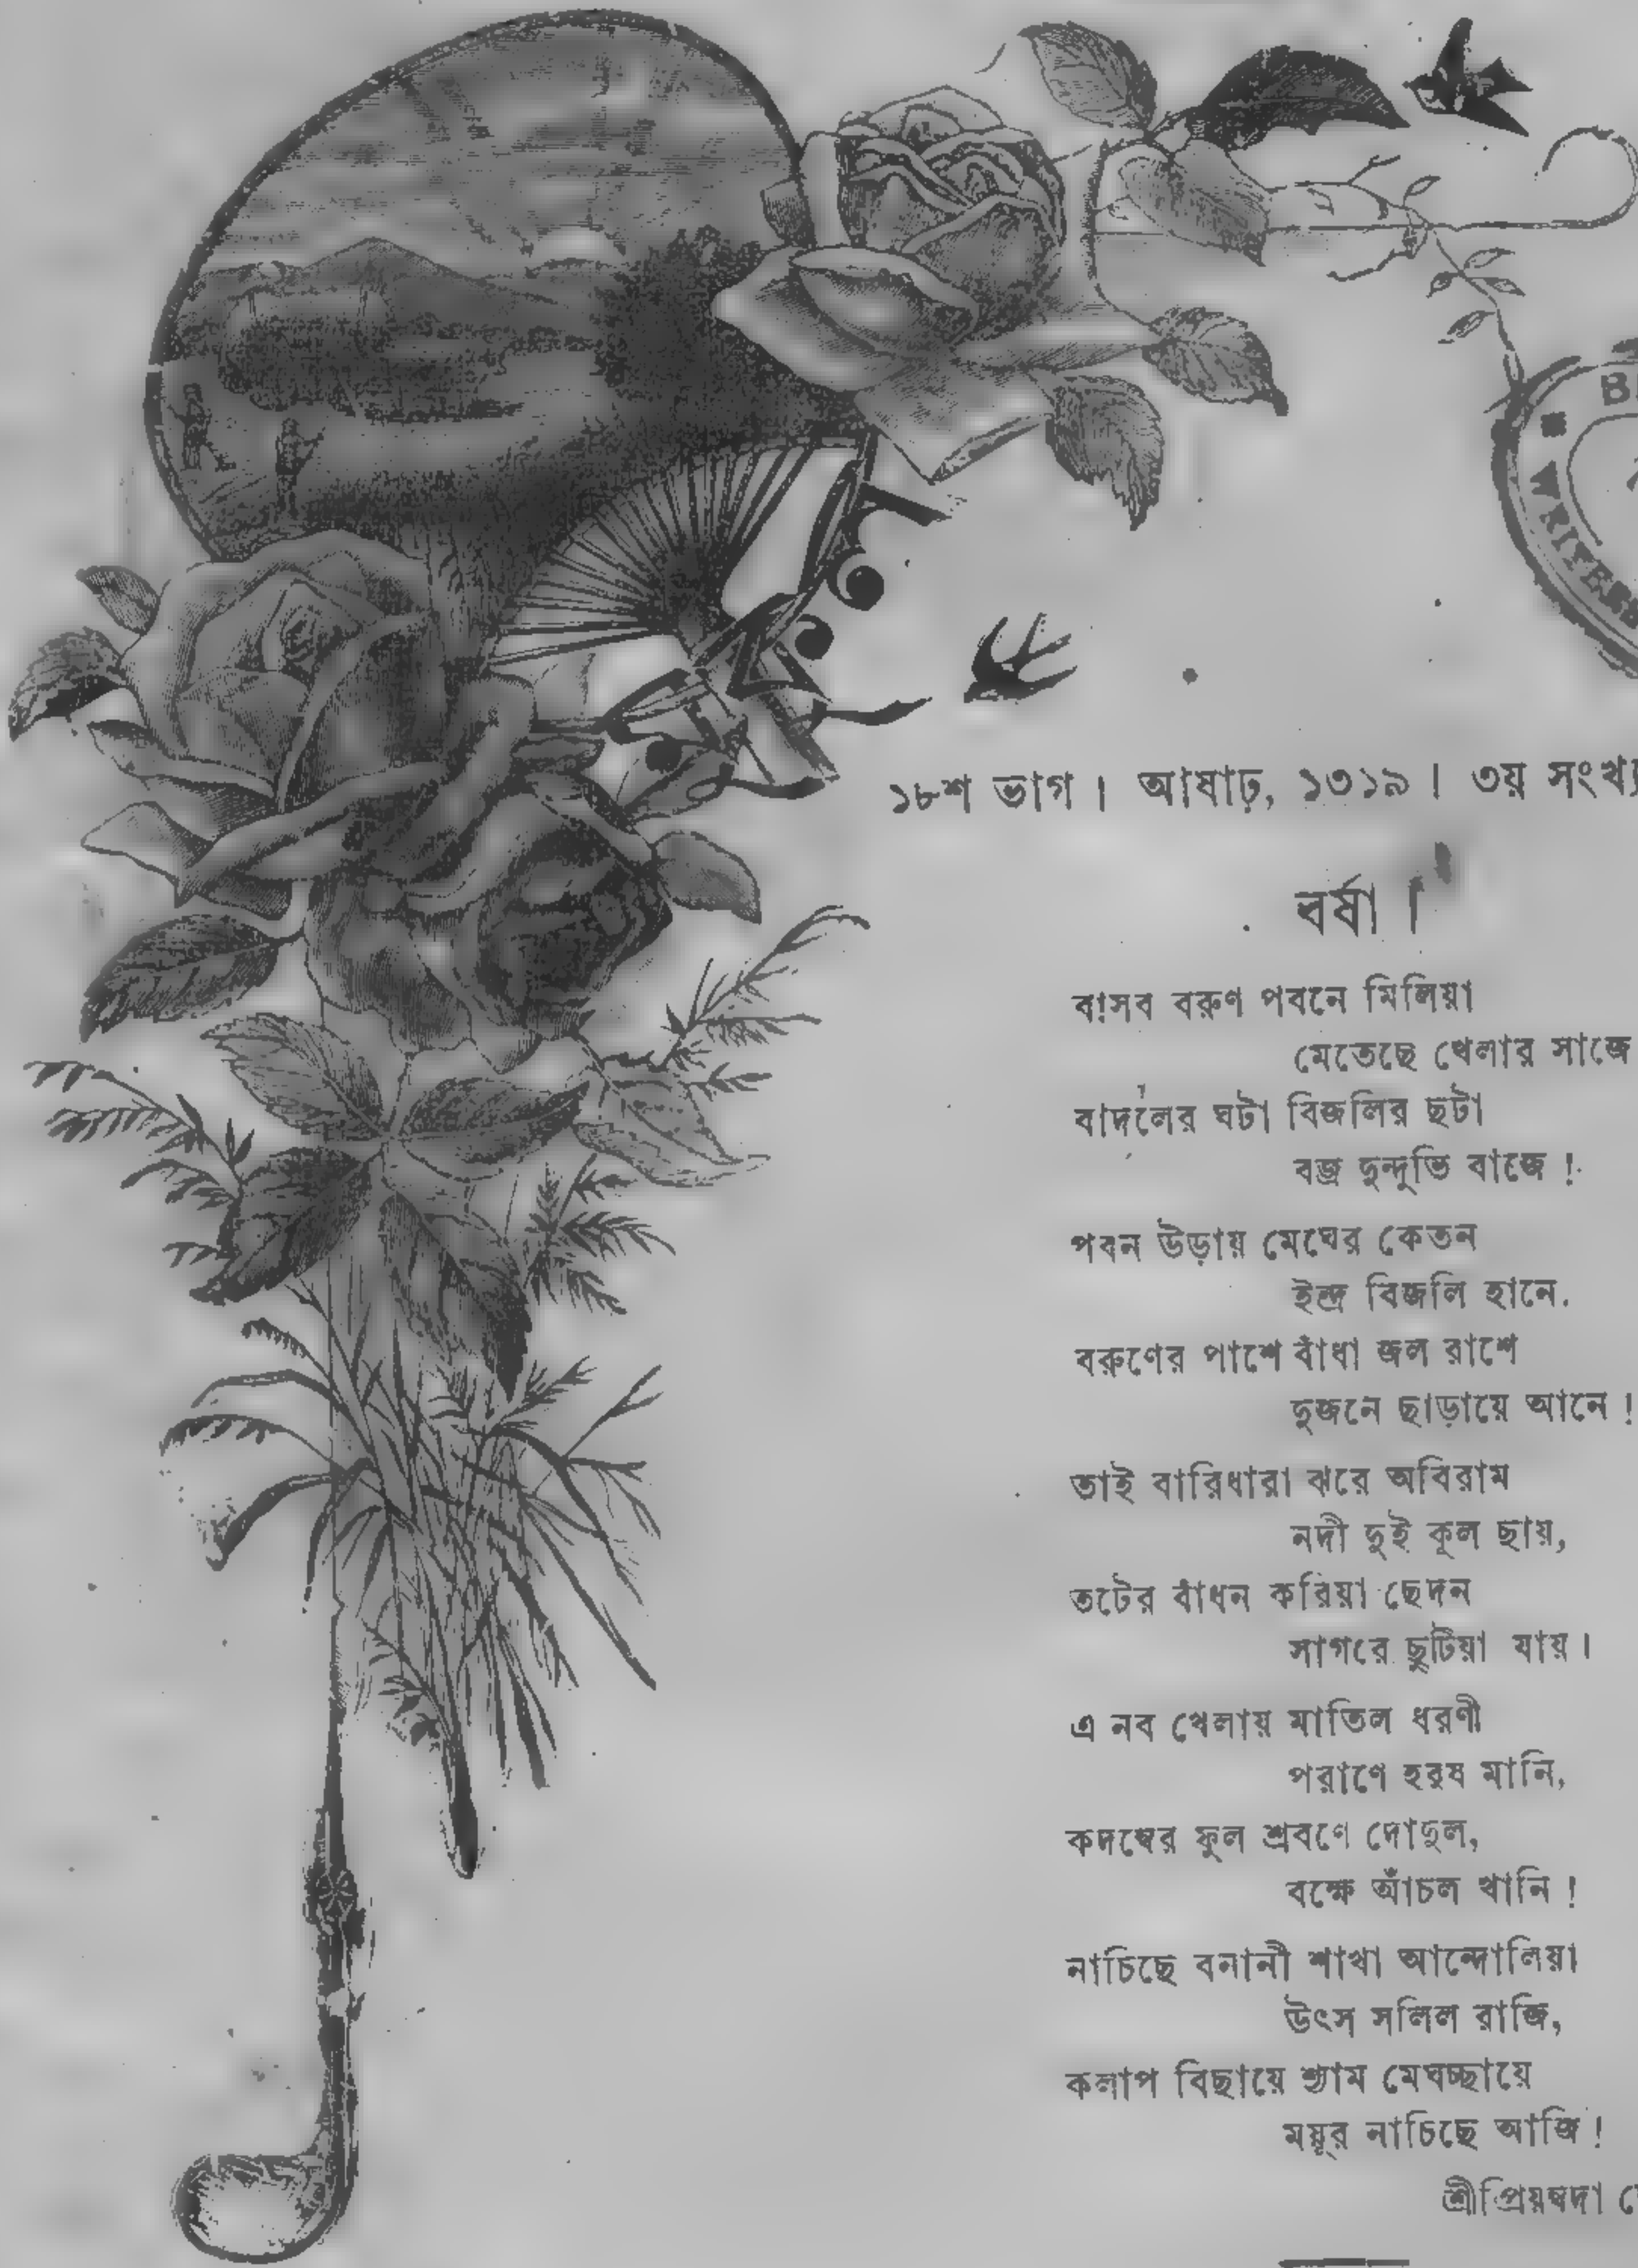 ১৮শ ভাগ। আষাঢ়, ১৩১৯। ৩য়
বর্ষা।
বাসব বরুণ পবনে মিলিয়া
মেতেছে খেলার সাজে
বাদলের ঘটা বিজলির ছটা
বজ্র দুন্দুভি বাজে!
পবন উড়ায় মেঘের কেতন
ইন্দ্র বিজলি হানে.
বরুণের পাশে বাঁধা জল রাশে
দুজনে ছাড়ায়ে আনে!
তাই বারিধারা ঝরে অবিরাম
নদী দুই কূল ছায়,
তটের বাঁধন করিয়া ছেদন
সাগরে ছুটিয়া যায়।
এ নব খেলায় মাতিল ধরণী
পরাণে হরষ মানি,
কদম্বের ফুল শ্রবণে দোদুল,
বক্ষে আঁচল খানি!
নাচিছে বনানী শাখা আন্দোলিয়া
উৎস সলিল রাজি,
কলাপ বিছায়ে শ্যাম মেঘচ্ছায়ে
ময়ূর নাচিছে আজি!
শ্রীপ্রিয়ম্বদা